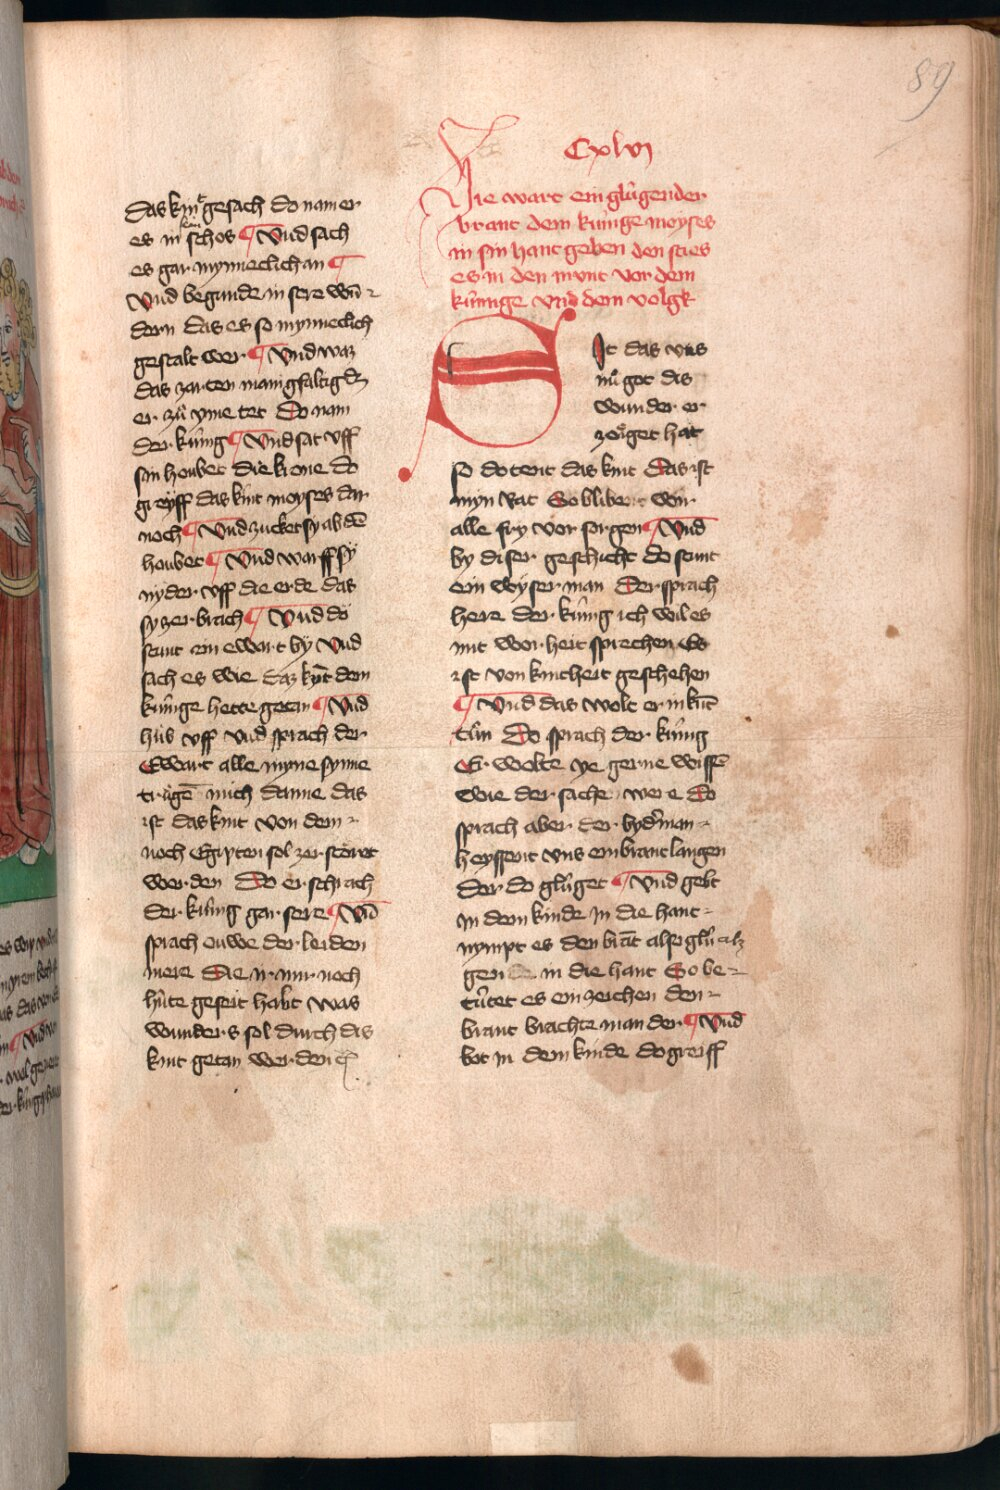 89
das kint gesach do nam er
es in sin schos ¶ Vnd sach
es gar mynneclich an ¶
Vnd begunde in sere wū⸗
dern das es so mynneclich
gestalt wer ¶ Vnd waz
das zarten manigfaltigk
er zů yme tet Do nam
der kúnig ¶ Vnd sat vff
sin houbet die krone do
greyff das kint moyses dar
noch ¶ Vnd zucket sy ab dē
houbet ¶ Vnd warff sy
nyder vff die erde das
sy zerbrach ¶ Vnd do
stunt ein ewart by Vnd
sach es wie daz kint dem
kúnige hette getan ¶ Vnd
hůb vff vnd sprach der
Ewart alle myne synne
trůgē mich danne das
ist das kint von dem ⸗
noch Egipten sol zerstöret
werden Do erschrach
der kúnig gar sere ¶ Vn̄
sprach ouwe der leiden
mere Die ir mir noch
húte geseit habt was
wunders sol durch dis
kint getan werden
Cxlvj
Hie wart ein glůgender
brant dem kúnige moyses
in sin hant geben den sties
es in den munt vor dem
kúnige vnd dem volgk
Sit das vns
nů got dis
wunder er
zöiget hat
so dotent das kint Das ist
myn rat So blibent wir
alle fry vor sorgen ¶ Vnd
by diser geschicht do stunt
ein wyser man Der sprach
here der kúnig ich wil es
mit worheit sprechen Es
ist von kintheit geschehen
¶ Vnd das wolt er in kūt
tůn Do sprach der kúnig
Er wolte ye gerne wissē
wie der sache were Do
sprach aber der byderman ⸗
heyssent vns ein brant langen
der do glůget ¶ Vnd gebt
in dem kinde in die hant ⸗
nympt es den brāt also glů
gen in die hant So be⸗
tútet es ein zeichen den ⸗
brant brachte man der ¶ Vnd
bot in dem kinde do greiff